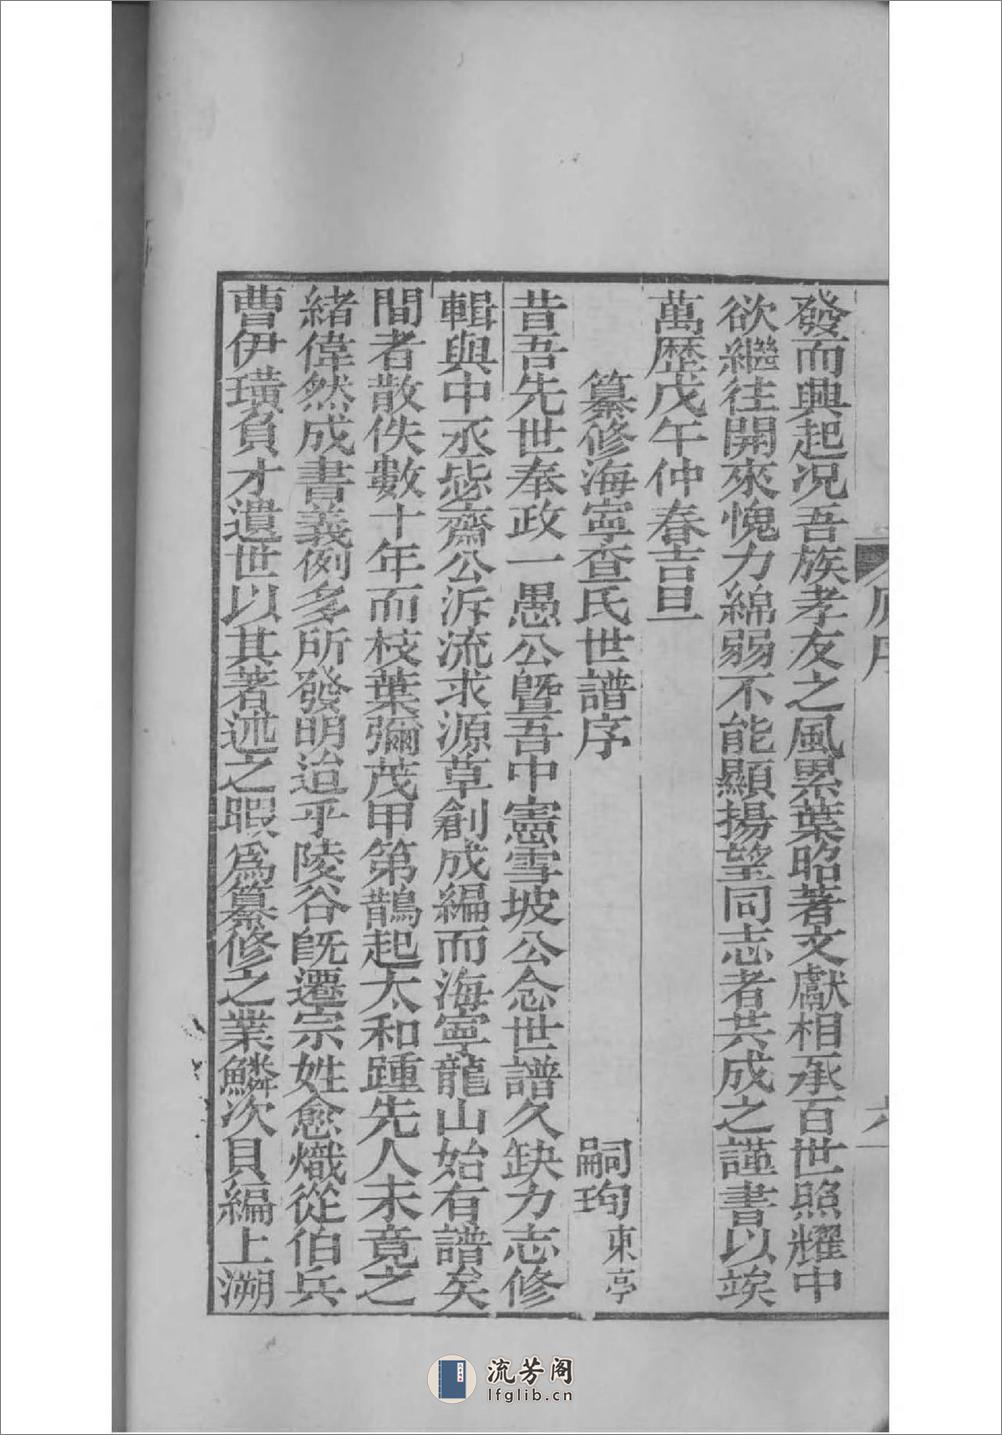 發而興起况吾族孝友之風累葉昭著文獻相承百世照耀中
欲繼往開來愧力綿弱不能顯揚望同志者共成之謹書以竢
萬歷戊午仲春吉旦
纂修海寧查氏世譜序
嗣珣東亭
昔吾先世奉政一愚公暨吾中憲雪坡公念世譜久缺力志修
輯與中丞毖齋公泝流求源草創成編而海寧龍山始有譜矣
間者散佚數十年而枝葉彌茂甲第鵲起太和踵先人未竟之
緒偉然成書義例多所發明迨乎陵谷旣遷宗姓愈熾從伯兵
曹伊璜負才遺世以其著述之暇爲纂修之業鱗次貝編上溯
流芳阁
lfglib.cn